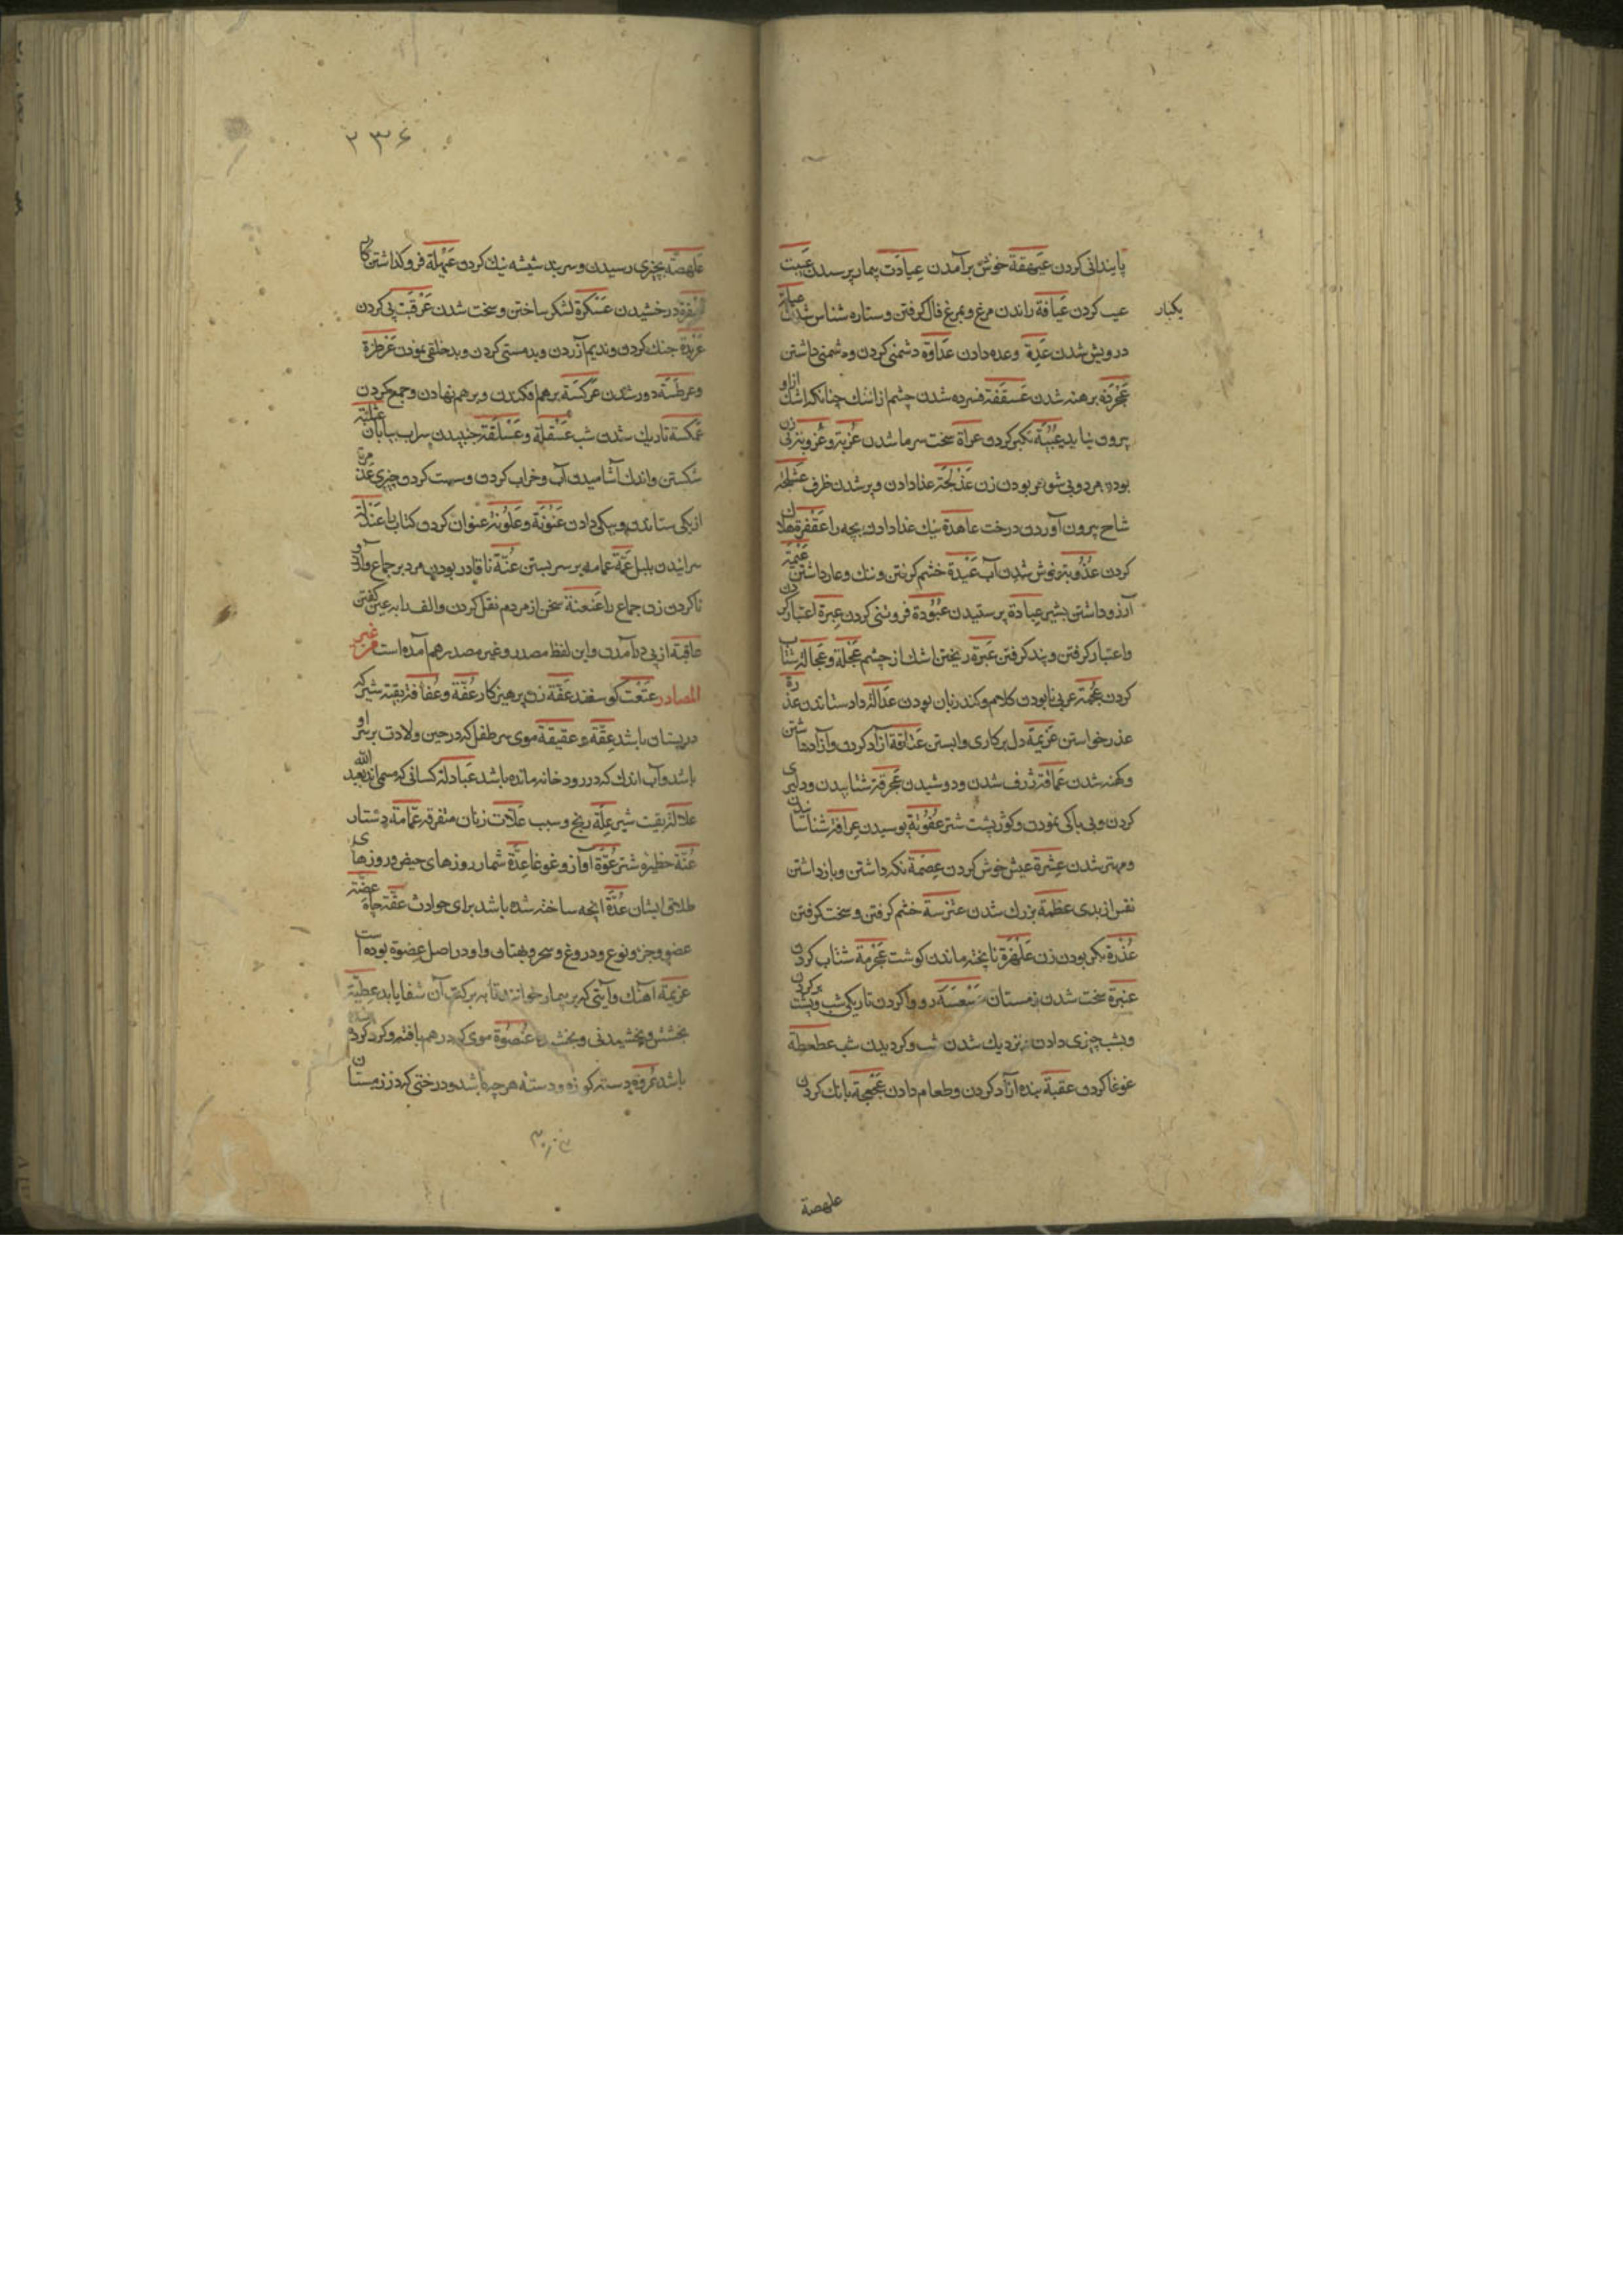 پایندانی کردن عیهقة خوش برآمدن عیادت بیمار پرسیدن عیبت
یکبار
عیب کردن عیافة راندن مرغ و بمرغ فال کرفتن و ستاره شناس شدن عیلة
درویش شدن عدة وعده دادن عداوة دشمنی کردن و دشمنی داشتن
عجردة برهنه شدن عسقفة فسرده شدن چشم از اشك چنانکه اشك ازاو
بیرون نیاید عبیة تکبر کردن عراة سخت سرما شدن عزبة و عزوبة بی زن
بودن مرد و بی شوهر بودن زن عذلجة غذا دادن و پر شدن ظرف
شاخ بیرون آوردن درخت عاهدة نیك غذا دادن بچه را عفقرة هلاك
کردن عذوبة خوش شدن آب عبدة خشم کرفتن و ننك و عار داشتن عیمة
آرزو داشتن بشیر عبادة پرستیدن عبودة فروتنی کردن عبرة اعتبار کردن
و اعتبار کرفتن و پند کرفتن عبرة ریختن اشك از چشم عجلة و عجالة شتاب
کردن عجمة عربی نابودن کلام و کند زبان بودن عدالة داد ستاندن عذرة
عذر خواستن عزیمة دل بر کاری وابستن عتاقة آزاد کردن و آزاد داشتن
و کهنه شدن عماقة ژرف شدن و دوشیدن عجرفة شتابیدن و دلیری
کردن و بی باکی نمودن و کوژ پشت شتر عفونة پوسیدن عرافة شناسانیدن
و مهتر شدن عشرة عیش خوش کردن عصمة نکه داشتن و باز داشتن
نفس از بدی عظمة بزرك شدن عترسة خشم کرفتن و سخت کرفتن
عذرة بکر بودن زن علهزة ناپخته ماندن کوشت عجرمة شتاب کردن
عنبرة سخت شدن زمستان عسعسة رو وا کردن تاریکی شب و پشت بر کردن
و بشب چیزی دادن و نزدیك شدن شب و کردیدن شب عطعطة
غوغا کردن عقبة بنده آزاد کردن و طعام دادن عجعجة بانك کردن
علهصة
۲۳۶
علهصة بچیزی رسیدن و سربند شیشه نیك کردن عبهلة فرو کذاشتن کار
درخشیدن عسکرة لشکر ساختن و سخت شدن عرقبت پی کردن
عربدة جنك کردن و ندیم آزردن و بدمستی کردن و بدخلقی نمودن عرطزة
و عرطسة دور شدن عرکسة برهم افکندن و برهم نهادن و جمع کردن
عکسة تاریك شدن شب عسقلة و عسلقة جنبیدن سراب بیابان
شکستن و اندك آشامیدن آب و خراب کردن و سست کردن چیزی
از یکی ستاندن و بیکی دادن عنونة و علونة عنوان کردن کتاب را عندلة
سرائیدن بلبل عمة عمامه بر سر بستن عنة ناقادر بودن مرد بر جماع
ناکردن زن جماع را عنعنة سخن از مردم نقل کردن و الف را به عین کفتن
عاقبة از پی درآمدن و این لفظ مصدر و غیر مصدر هم آمده است من غیر
المصادر عتعت کوسفند عفة زن پرهیزکار عفة و عفافة بقیه شیر که
در پستان باشد عقة و عقیقة موی سر طفل که در حین ولادت بر سر او
باشد و آب اندك که در رودخانه مانده باشد عبادلة کسانی که مسمی اند بعبد الله
علالة بقیت شیر علة رنج و سبب علات زنان متفرقه عمامة دستار
عنة حظیره شتر عوة آواز و غوغا عدة شمار روزهای حیض و روزهای
طلاق ایشان عدة آنچه ساخته شده باشد برای حوادث عفة چاه عضة
عضو و جزو نوع و دروغ و سحر و بهتان و او در اصل عضوة بوده است
عزیمة آهنك و آیتی که بر بیمار خوانند تا به برکت آن شفا یابد عطیة
بخشش و بخشیدنی و بخشیده عنصوة موی که در هم بافته و کرد کرده
باشد عروة دسته کوزه و دسته هر چه باشد و درختی که در زمستان